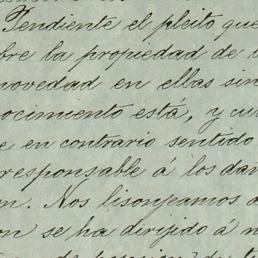 Pendiente el pleito que
bre la propiedad de
novedad en ellas sin
ocimiento está, y cu
e en contrario sentido
responsable á los dañ
n. Nos lisonjeamos
on se ha dirijido á n
de posesion, de